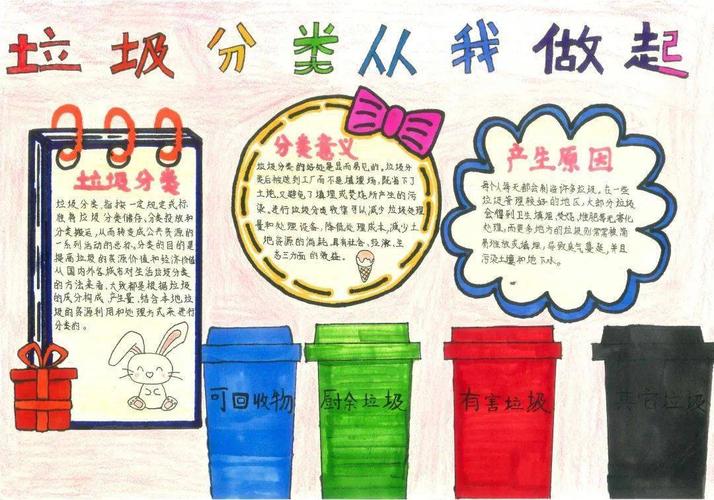 垃圾分类从我做起
垃圾分类
垃圾分类,指按一定规定或标
准将垃圾分类储存、分类投放和
分类搬运,从而转变成公共资源的
一系列活动的总称。分类的目的是
提高垃圾的资源价值和经济价值
从国内外各城市对生活垃圾分类
的方法来看,大致都是根据垃圾
的成分构成,产生量,结合本地垃
圾的资源利用和处理方式来进行
分类的。
分类意义
垃圾分类的好处是显而易见的。垃圾分
类后被送到工厂而不是填埋场,既省下了
土地,又避免了填埋或焚烧所产生的污
染,进行垃圾分类收集可以减少垃圾处理
量和处理设备,降低处理成本,减少土
地资源的消耗,具有社会、经济、生
态三方面的效益。
产生原因
每个人每天都会制造许多垃圾,在一些
垃圾管理较好的地区,大部分垃圾
会得到卫生填埋、焚烧、堆肥等无害化
处理,而更多地方的垃圾则常常被简
易堆放或填埋,导致臭气蔓延,并且
污染土壤和地下水。
可回收物
厨余垃圾
有害垃圾
其它垃圾